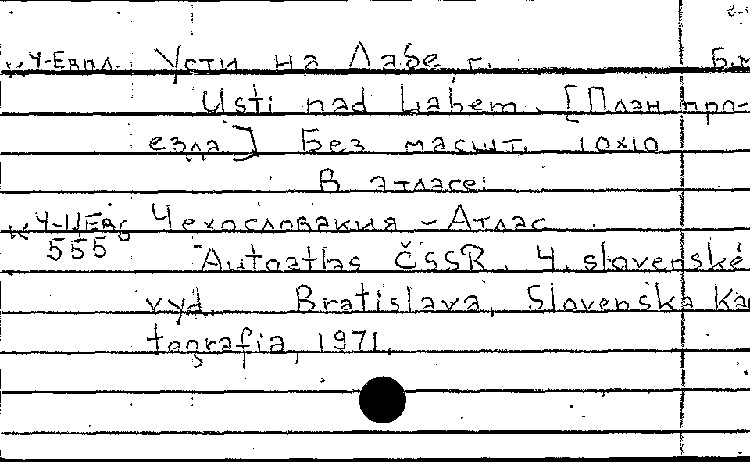 Усти на Лабе г. Б.
Usti nad Labem. [План про-
езда] Без масшт. 10x10
В атласе:
Чехословакия - Атлас
555 Autoatlas ČSSR. 4. slovenské
vyd. Bratislava, Slovenska Ka
tografia, 1971.